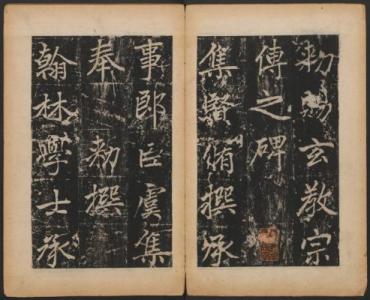 勑賜玄教宗
傳之碑
集賢脩撰承
事郎臣虞集
奉 勑撰
翰林學士承